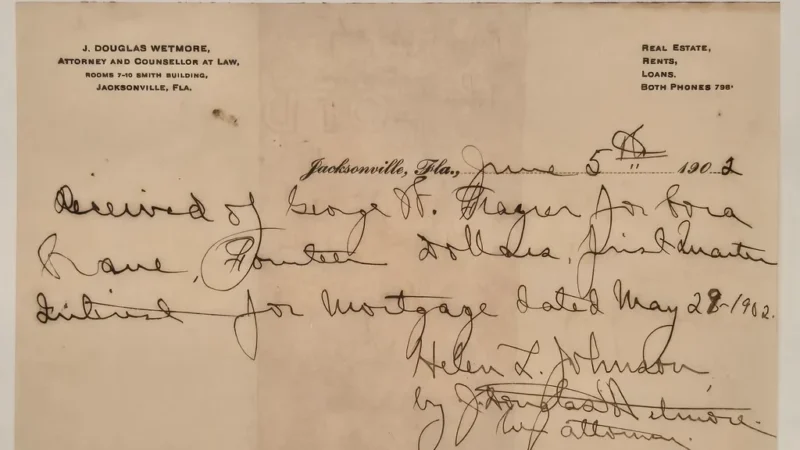 J. DOUGLAS WETMORE,
ATTORNEY AND COUNSELLOR AT LAW,
ROOMS 7-10 SMITH BUILDING,
JACKSONVILLE, FLA.
REAL ESTATE,
RENTS,
LOANS.
BOTH PHONES 798.
Jacksonville, Fla., June 5th 1902
Received of George W. Frazier for Cora
Fourteen Dollars, first Quarter
Interest for Mortgage dated May 28-1902.
Helen L. Johnson,
by J. Douglas Wetmore.
attorney.